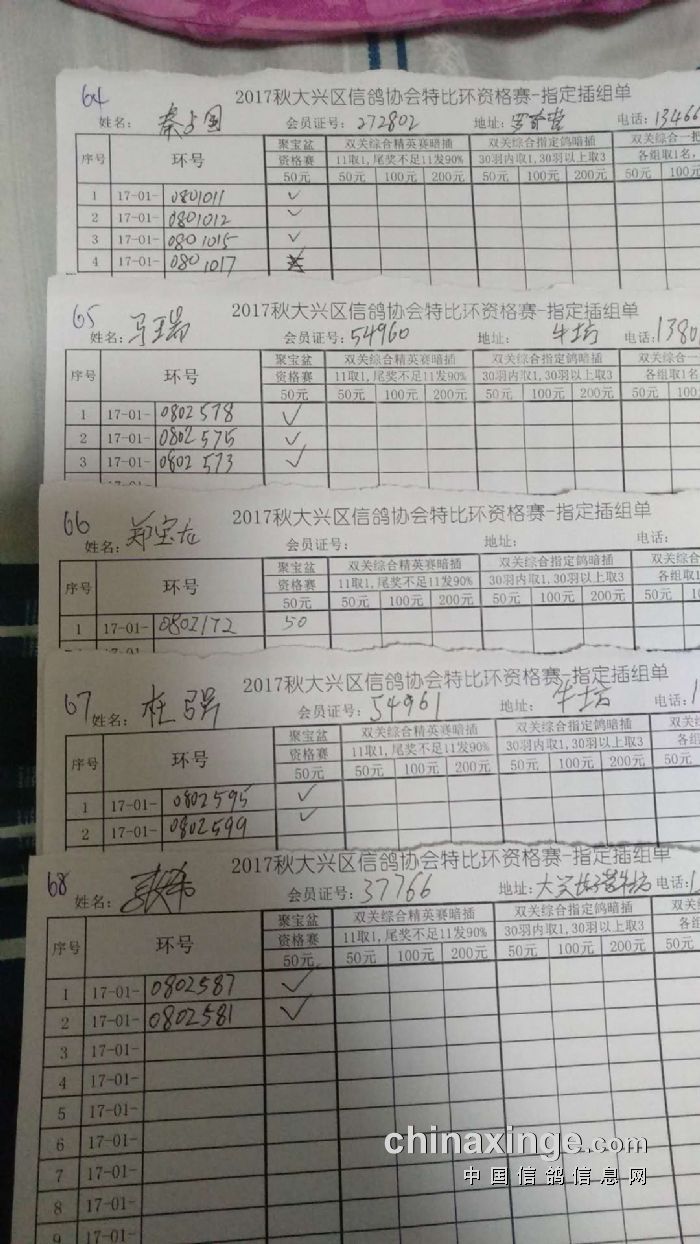 64
2017秋大兴区信鸽协会特比环资格赛-指定插组单
姓名: 秦占国 会员证号: 272802 地址: 电话: 13466
序号 环号 聚宝盆 双关综合精英赛暗插 双关综合指定鸽暗插 双关综合一把
资格赛 11取1,尾奖不足11发90% 30羽内取1,30羽以上取3 各组取1名,
50元 50元 100元 200元 50元 100元 200元 50元 100元
1 17-01- 0801011 ✓
2 17-01- 0801012 ✓
3 17-01- 0801015 ✓
4 17-01- 0801017
65
2017秋大兴区信鸽协会特比环资格赛-指定插组单
姓名: 马瑞 会员证号: 54960 地址: 牛坊 电话: 1380
序号 环号 聚宝盆 双关综合精英赛暗插 双关综合指定鸽暗插 双关综合一
资格赛 11取1,尾奖不足11发90% 30羽内取1,30羽以上取3 各组取1名
50元 50元 100元 200元 50元 100元 200元 50元 100
1 17-01- 0802578 ✓
2 17-01- 0802575 ✓
3 17-01- 0802573 ✓
66
2017秋大兴区信鸽协会特比环资格赛-指定插组单
姓名: 郑宝龙 会员证号: 地址: 电话:
序号 环号 聚宝盆 双关综合精英赛暗插 双关综合指定鸽暗插 双关综合
资格赛 11取1,尾奖不足11发90% 30羽内取1,30羽以上取3 各组取1
50元 50元 100元 200元 50元 100元 200元 50元
1 17-01- 0802172 50
67
2017秋大兴区信鸽协会特比环资格赛-指定插组单
姓名: 杜弓异 会员证号: 54961 地址: 牛坊 电话: 1
序号 环号 聚宝盆 双关综合精英赛暗插 双关综合指定鸽暗插 双关综
资格赛 11取1,尾奖不足11发90% 30羽内取1,30羽以上取3 各组
50元 50元 100元 200元 50元 100元 200元 50元
1 17-01- 0802595 ✓
2 17-01- 0802599 ✓
68
2017秋大兴区信鸽协会特比环资格赛-指定插组单
姓名: 会员证号: 37766 地址: 大兴 电话:
序号 环号 聚宝盆 双关综合精英赛暗插 双关综合指定鸽暗插 双关
资格赛 11取1,尾奖不足11发90% 30羽内取1,30羽以上取3 各
50元 50元 100元 200元 50元 100元 200元 50元
1 17-01- 0802587 ✓
2 17-01- 0802581 ✓
3 17-01-
4 17-01-
5 17-01-
6 17-01-
7 17-01-
8 17-01-
9 17-01-
chinaxinge.com
中国信鸽信息网